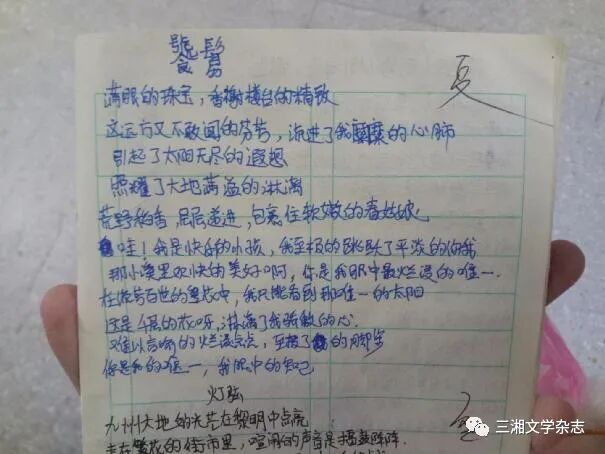 饕髵
满眼的珠宝，香榭楼台的精致
这远方又不敢闻的芬芳，渐进了我的心肺
引起了太阳无尽的遐想
照耀了大地满溢的淋漓
荒野稻香，层层递进，包裹住软嫩的春姑娘
哇！我是快乐的小孩，我至极的跳跃了平淡的
那小溪里欢快的美好啊，你是我眼中最烂漫的唯一.
在流芳百世的中，我只能看到那唯一的太阳
还是的花呀，淋漓了我骄傲的心.
难以言喻的烂漫点点，的脚步
你是我的唯一，我眼中的知己
灯弦
九州大地的光芒在黎明中点亮
走在繁花的街市里，喧闹的声音是擂鼓阵阵.
夏
三湘文学杂志